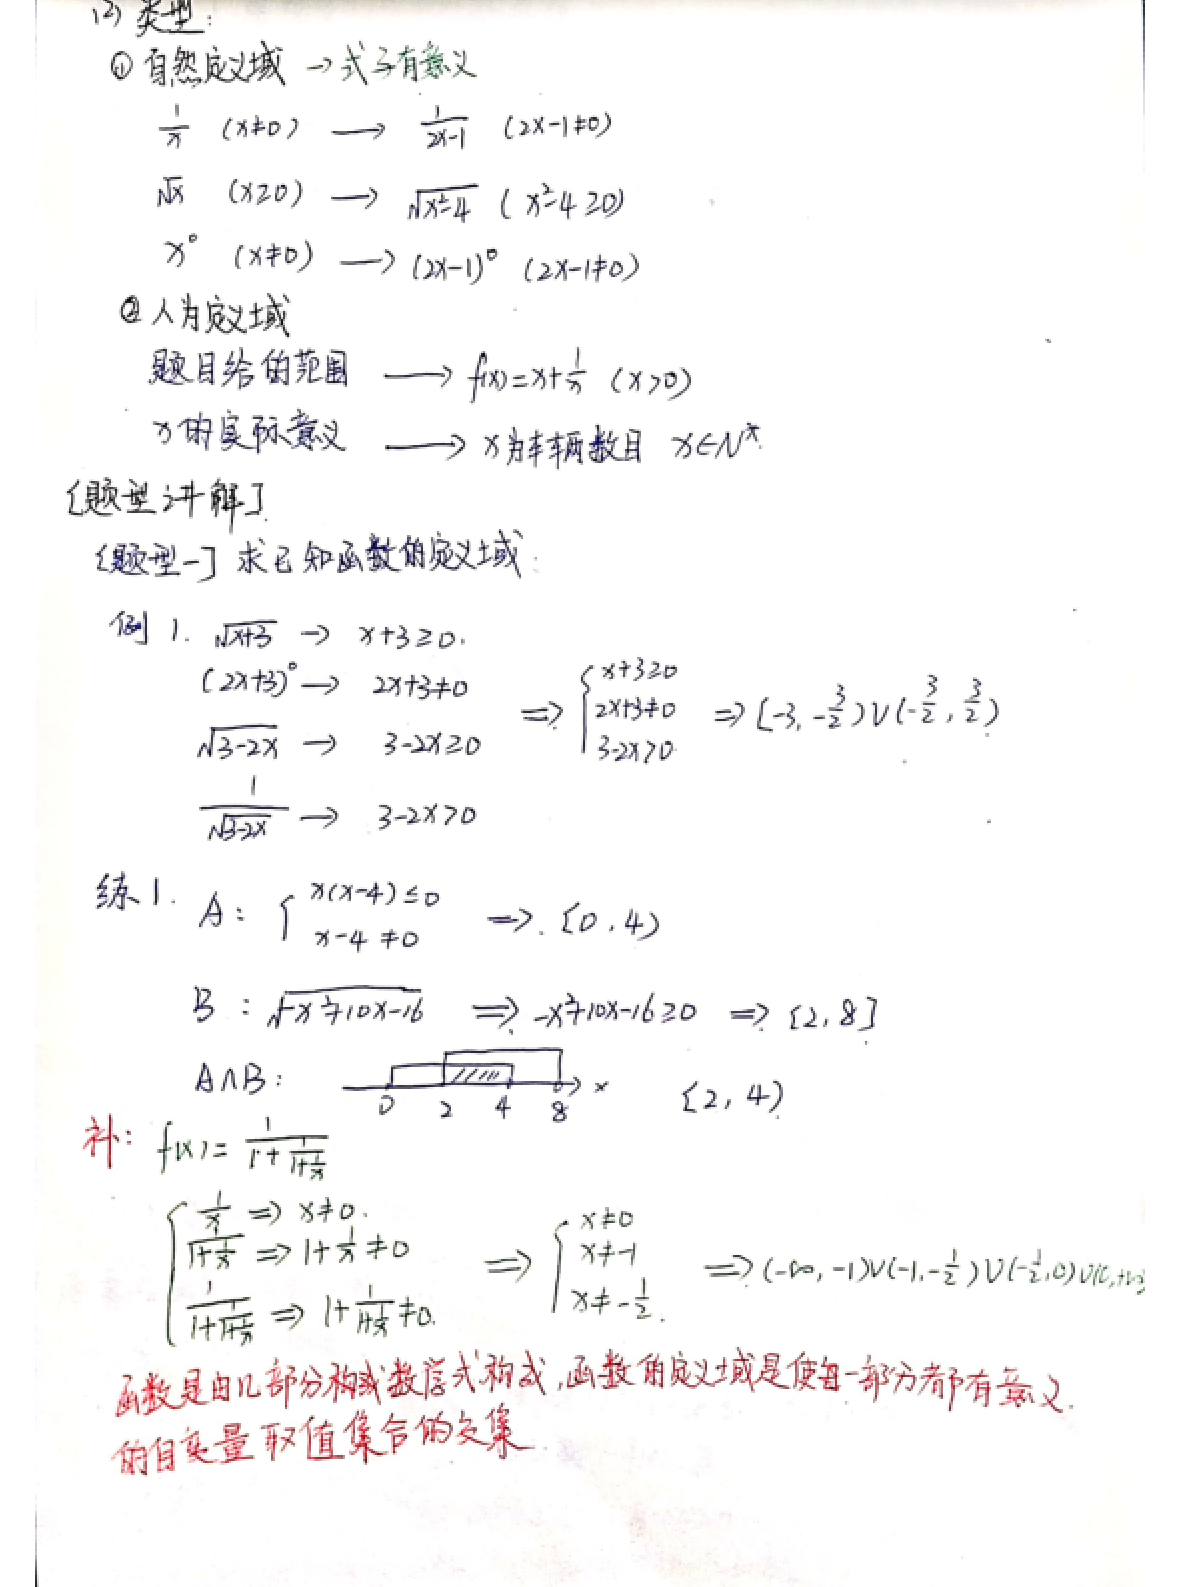 (2) 类型：
① 自然定义域 → 式子有意义
1/x (x≠0) → 1/(2x-1) (2x-1≠0)
√x (x≥0) → √(x²-4) (x²-4≥0)
x⁰ (x≠0) → (2x-1)⁰ (2x-1≠0)
② 人为定义域
题目给的范围 → f(x)=x+1/x (x>0)
x的实际意义 → x为车辆数目 x∈N*
[题型讲解]
[题型一] 求已知函数的定义域：
例1. √(x+3) → x+3≥0.
(2x+3)⁰ → 2x+3≠0
√(3-2x) → 3-2x≥0
1/√(3-2x) → 3-2x>0
⇒ { x+3≥0
2x+3≠0
3-2x>0
⇒ [-3, -3/2)∪(-3/2, 3/2)
练1. A: { x(x-4)≤0
x-4≠0
⇒ [0, 4)
B: √(-x²+10x-16) ⇒ -x²+10x-16≥0 ⇒ [2, 8]
A∩B: 0 2 4 8 x [2, 4)
补: f(x)= 1/(1+1/(1+1/x))
{ 1/x ⇒ x≠0.
1/(1+1/x) ⇒ 1+1/x≠0
1/(1+1/(1+1/x)) ⇒ 1+1/(1+1/x)≠0.
⇒ { x≠0
x≠-1
x≠-1/2.
⇒ (-∞, -1)∪(-1, -1/2)∪(-1/2, 0)∪(0, +∞)
函数是由几部分构成数学式构成,函数的定义域是使每一部分都有意义.
的自变量取值集合的交集